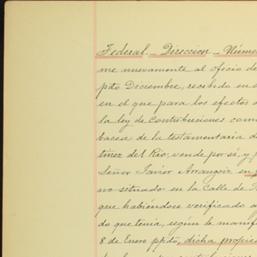 Federal. - Direccion - Núme
me nuevamente al oficio de
ppdo Diciembre, recibido en e
en el que para los efectos d
la ley de Contribuciones com
bacea de la testamentaria d
tínez del Rio, vende por sí, y
Señor Javier Arrangoiz en
no situado en la Calle de
que habiéndose verificado a
do que tenía, según la manif
8 de Enero ppdo, dicha propie